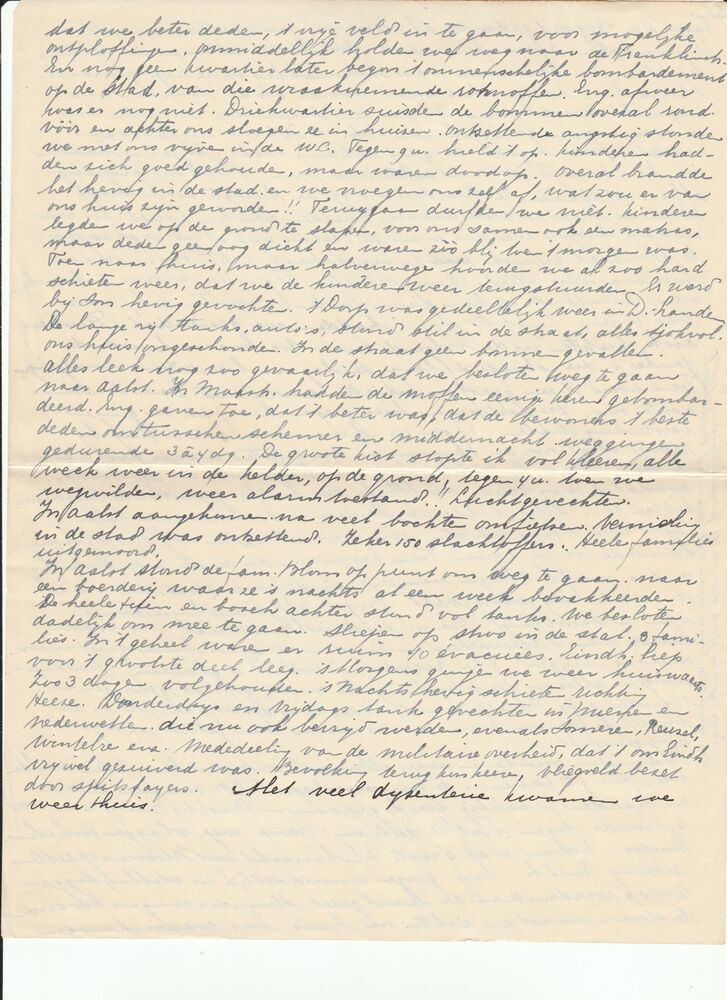 dat we beter deden, 't vrije veld in te gaan, voor mogelijke
ontploffingen, onmiddellijk holden we weg naar de Franklinstr.
En nog geen kwartier later begon 't onmenschelijke bombardement
op de stad, van die wraaknemende rotmoffen. Eng. afweer
was er nog niet. Driekwartier suisden de bommen overal rond.
vóór en achter ons sloegen ze in huizen. ontzettende angstig stonden
we met ons vijven in de W.C. Tegen 9 u. hield 't op. kinderen had-
den zich goed gehouden, maar waren doodop. Overal brandde
het hevig in de stad. en we vroegen ons zelf af, wat zou er van
ons huis zijn geworden!! Teruggaan durfden we niet. kinderen
legden we op de grond te slapen, voor ons samen ook een matras,
maar deden geen oog dicht en waren zóó blij toen 't morgen was.
Toen naar huis, maar halverwege hoorden we al zoo hard
schieten weer, dat we de kinderen weer terugstuurden. Er werd
bij Son hevig gevochten. 't Dorp was gedeeltelijk weer in D. handen
De lange rij tanks, auto's, stond stil in de straat, alles tjokvol.
ons huis ongeschonden. In de straat geen bommen gevallen.
alles leek nog zoo gevaarlijk, dat we besloten weg te gaan
naar Aalst. In Maastr. hadden de moffen eenige keren gebombar-
deerd. Eng. gaven toe, dat 't beter was, dat de bewoners 't beste
deden om tusschen schemer en middernacht weg gingen
gedurende 3 à 4 dg. De groote kist stopte ik vol kleeren, alle
week weer in de kelder, op de grond, tegen 4 u. toen we
wegwilden, weer alarmtoestand!! Luchtgevechten.
In Aalst aangekomen na veel bochten omfietsen. Vernieling
in de stad was ontzettend. Zeker 150 slachtoffers. Heele families
uitgemoord.
In Aalst stond de fam. Blom op punt om weg te gaan. naar
een boerderij waar ze 's nachts al een week bivakkeerden.
De heele tuin en bosch achter stond vol tanks. We besloten
dadelijk om mee te gaan. Sliepen op stroo in de stal. 3 fami-
lies. In 't geheel waren er ruim 40 evacuées. Eindh. liep
voor 't grootste deel leeg. 's Morgens gingen we weer huiswaarts.
Zoo 3 dagen volgehouden. 's Nachts hevig schieten richting
Heeze. Donderdags en vrijdags tank gevechten in Mierlo en
nederwetten. die nu ook bevrijd werden, evenals Someren, Reusel,
Wintelre enz. Mededeeling van de militaire overheid, dat 't om Eindh.
vrijwel gezuiverd was. Bevolking terug kon keeren, vliegveld bezet
door spitfayers. Met veel dysenterie kwamen we
weer thuis.